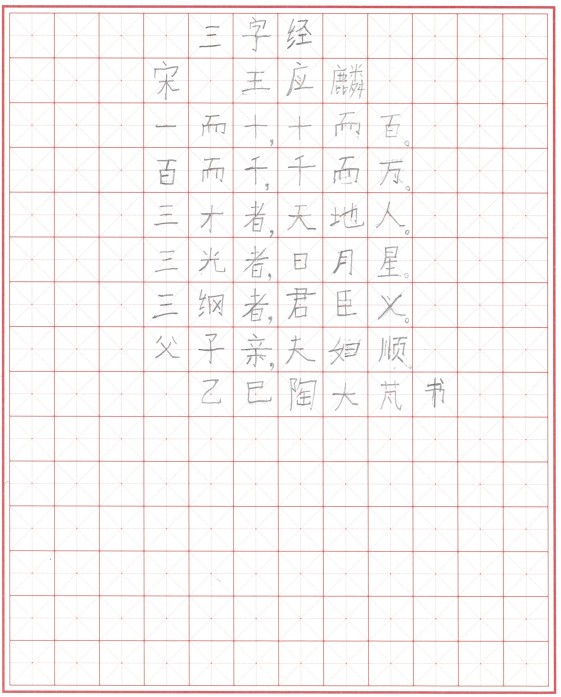 三字经
宋 王应麟
一而十,十而百。
百而千,千而万。
三才者,天地人。
三光者,日月星。
三纲者,君臣义。
父子亲,夫妇顺。
乙巳陶大芃书